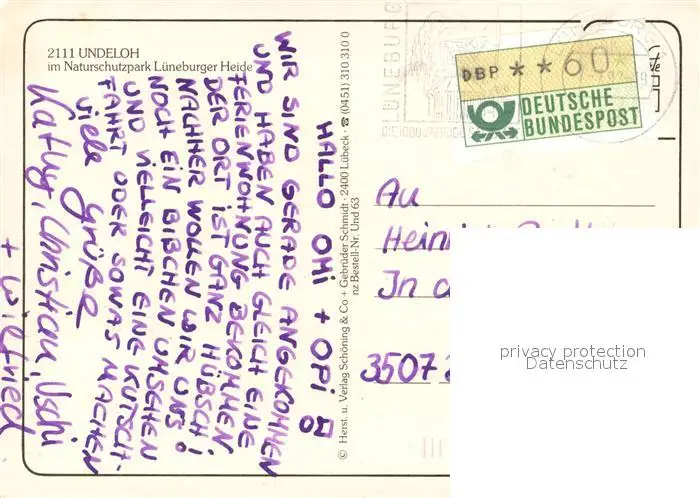 2111 UNDELOH
im Naturschutzpark Lüneburger Heide
HALLO OMI + OPI
WIR SIND GERADE ANGEKOMMEN
UND HABEN AUCH GLEICH EINE
FERIENWOHNUNG BEKOMMEN
DER ORT IST GANZ HÜBSCH!
NACHHER WOLLEN WIR UNS
NOCH EIN BIBCHEN UMSEHEN
UND VIELLEICHT EINE KUTSCH-
FAHRT ODER SOWAS MACHEN
Viele Grüße
Kathy, Christian, Uschi
+ Wilfried
© Herst. u. Verlag Schöning & Co + Gebrüder Schmidt · 2400 Lübeck · ☎ (0451) 310 310 0
nz Bestell-Nr. Und 63
LÜNEBURG
DBP * * 60
DEUTSCHE
BUNDESPOST
An
In
3507
privacy protection
Datenschutz